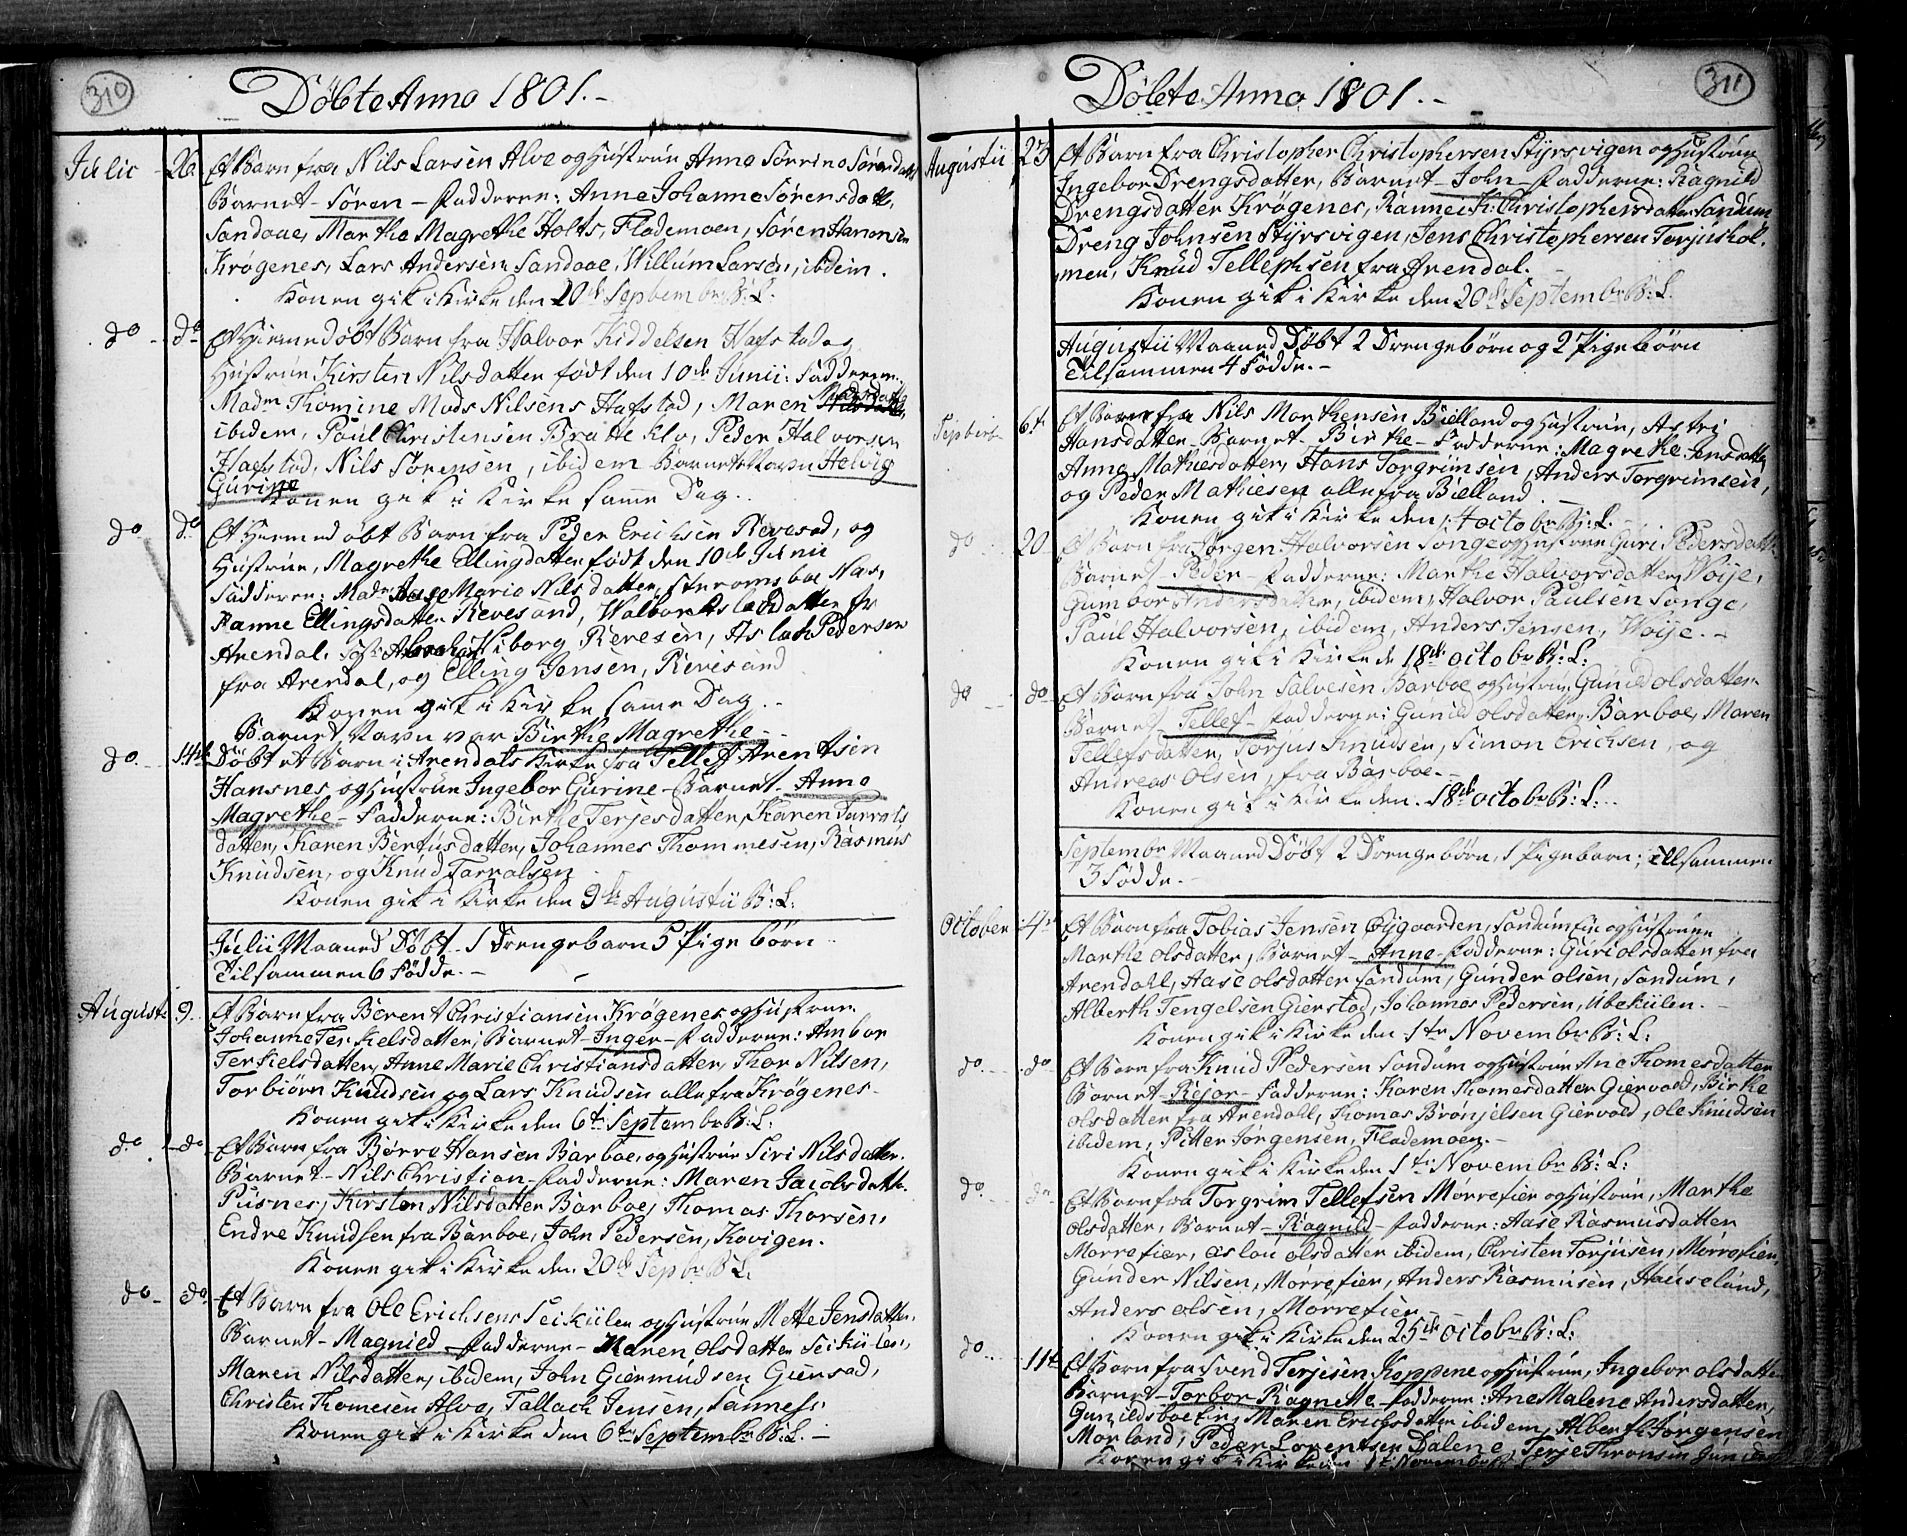 310
Döbte Anno 1801.-
Julic 26. Et Barn fra Nils Larsen Alve og Hustrue Anne Sørrine Sørensdatt
Barnet - Søren - Fadderne: Anne Johanne Sørensdatt,
Sandaae, Marthe Magrethe Holts, Flademoen, Søren Hanonsen
Krøgenes, Lars Andersen Sandaae, Willum Larsen, ibidem.
Konen gik i Kirke den 20de Septembr B: L:
do do Et Hiemedøbt Barn fra Halvor Kiddelsen Hafstad og
Hustrue Kirsten Nilsdatter født den 10de Junii: Fadderne.
Madm Thomine Mads Nilsens Hafstad, Maren Madsdatter
ibidem, Paul Christensen Bratteklv, Peder Halvorsen
Hafstad, Nils Sørensen, ibidem Barnets Navn Helvig
Gurine
Konen gik i Kirke samme Dag.
do do Et Hiemedøbt Barn fra Peder Erichsen Revesad, og
Hustrue, Magrethe Ellingdatter født den 10de Junii
Fadderne: Madm Aage Maria Nilsdatter, Strømsboe Næs,
Hanne Ellingsdatter Revesand, Walbor Aslachdatter fr
Arendal, Viborg Revesen, Aslach Pedersen
fra Arendal, og Elling Jensen, Revesand
Konen gik i Kirke samme Dag.
Barnets Navn var Birthe Magrethe
do. 14de Döbt et Barn i Arendals Kirke fra Tellef Arentsen
Hansnes og Hustrue Ingebor Gurine - Barnet - Anne
Magrethe - Fadderne: Birthe Terjesdatter, Karen Tarrals
datter, Karen Bertusdatter, Johannes Thommesen, Rasmus
Knudsen, og Knud Tarralsen
Konen gik i Kirke den 9de Augustii B: L:
Julii Maaned Döbt 1 Drengebarn 5 Pige börn
Tilsammen 6 Födde.-
August 9. Et Barn fra Berent Christiansen Krøgenes og Hustrue
Johanne Terkelsdatter, Barnet - Inger - Fadderne: Ambor
Terkielsdatter, Anne Marie Christiansdatter, Thor Nilsen,
Torbiørn Knudsen og Lars Knudsen alle fra Krøgenes.
Konen gik i Kirke den 6te Septembr B: L:
do do Et Barn fra Børre Hansen Barboe, og Hustrue Siri Nilsdatter.
Barnet - Nils Christian - Fadderne: Maren Jacobsdatter
Pusnes, Kirsten Nilsdatter Barboe, Thomas Thorsen,
Endre Knudsen fra Barboe, John Pedersen, Kovigen.
Konen gik i Kirke den 20de Septbr B: L:
do - do. Et Barn fra Ole Erichsen Seikiilen og Hustrue Mette Jensdatter,
Barnet - Magnild - Fadderne - Maren Olsdatter Seikiilen,
Maren Nilsdatter, ibidem, John Giermundsen Giersad,
Christen Thomesen Alve, Tallach Jensen, Sannes:
Konen gik i Kirke den 6te Septembr B: L: -
311
Döbte Anno 1801.-
Augustii 23 Et Barn fra Christopher Christophersen Styrsvigen og Hustrue
Ingebor Drengsdatter, Barnet - John - Fadderne: Ragnild
Drengsdatter Krøgenes, Rannei K: Christophersdatter Sandum
Dreng Johnsen Styrsvigen, Jens Christophersen Torjushol.
men, Knud Tellephsen fra Arendal.
Konen gik i Kirke den 20de Septembr B: L:
Augustii Maaned Döbt 2 Drengebörn og 2 Pigebörn
Tilsammen 4 Födde.-
Septbr 6te Et Barn fra Nils Mathesen Bielland og Hustrue, Astri
Hansdatter Barnet - Birthe - Fadderne: Magrethe Jensdatter
Anne Mathiesdatter, Hans Torgrimsen, Anders Torgrimsen,
og Peder Mathiesen alle fra Bielland.
Konen gik i Kirke den 4 Octobr B: L:
do 20 Et Barn fra Jørgen Halvorsen Songe og Hustrue Guri Pedersdatt
Barnet - Peder - Fadderne: Marthe Halvorsdatter, Woije,
Gumbor Andersdatter, ibidem, Halvor Paulsen Songe,
Paul Halvorsen, ibidem, Anders Jensen, Woije.-
Konen gik i Kirke de 18de Octobr B: L:
do do Et Barn fra John Salvesen Barboe og Hustrue Gunild Olsdatter
Barnet - Tellef - Fadderne: Gunild Olsdatter, Barboe, Maren
Tellefsdatter, Torjus Knudsen, Simon Erichsen, og
Andreas Olsen, fra Barboe.-
Konen gik i Kirke den 18de Octobr B: L:.
Septembr Maaned Döbt 2 Drengebörn, 1 Pigebarn; Tilsammen
3 Födde.-
October 4de Et Barn fra Tobias Jensen Øygaarden, Sandum Eie og Hustrue
Marthe Olsdatter, Barnet - Anne - Fadderne: Guri Olsdatter fra
Arendahl, Aase Olsdatter Sandum, Gunder Olsen, Sandum,
Alberth Tengelsen Gierstad, Johannes Pedersen, Ubekiilen.
Konen gik i Kirke den 1te Novembr B: L:
do. do Et Barn fra Knud Pedersen Sandum og Hustrue Ane Thomesdatter
Barnet - Rejor - Fadderne: Karen Thomasdatter Giervold, Birthe
Olsdatter fra Arendahl, Thomas Bronjelsen Giervold, Ole Knudsen
ibidem, Pitter Jørgensen, Flademoen.-
Konen gik i Kirke den 1te Novembr B: L:
do. do Et Barn fra Torgrim Tellefsen Mørrefier og Hustrue, Marthe
Olsdatter, Barnet - Ragnild - Fadderne: Aase Rasmusdatter
Morrefier, Aslou Olsdatter ibidem, Christen Torjusen, Morrefier,
Gunder Nilsen, Morrefier, Anders Rasmusen, Hauseland,
Anders Olsen, Morrefier
Konen gik i Kirke den 25de Octobr B: L:
do. 11te Et Barn fra Svend Terjesen Koppene og Hustrue, Ingebor Olsdatter
Barnet - Torbor Ragnette - Fadderne: Ane Malene Andersdatter,
Gunildsboe Eie, Maren Erichsdatter ibidem, Albert Jørgensen
Morland, Peder Lorentsen Dalene, Terje Thronsen
Konen gik i Kirke den 1te Novembr B: L: